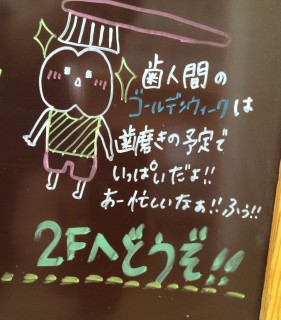 歯人間の
ゴールデンウィークは
歯磨きの予定で
いっぱいだよ!!
あー忙しいなぁ!!ふぅ!!
2Fへどうぞ!!